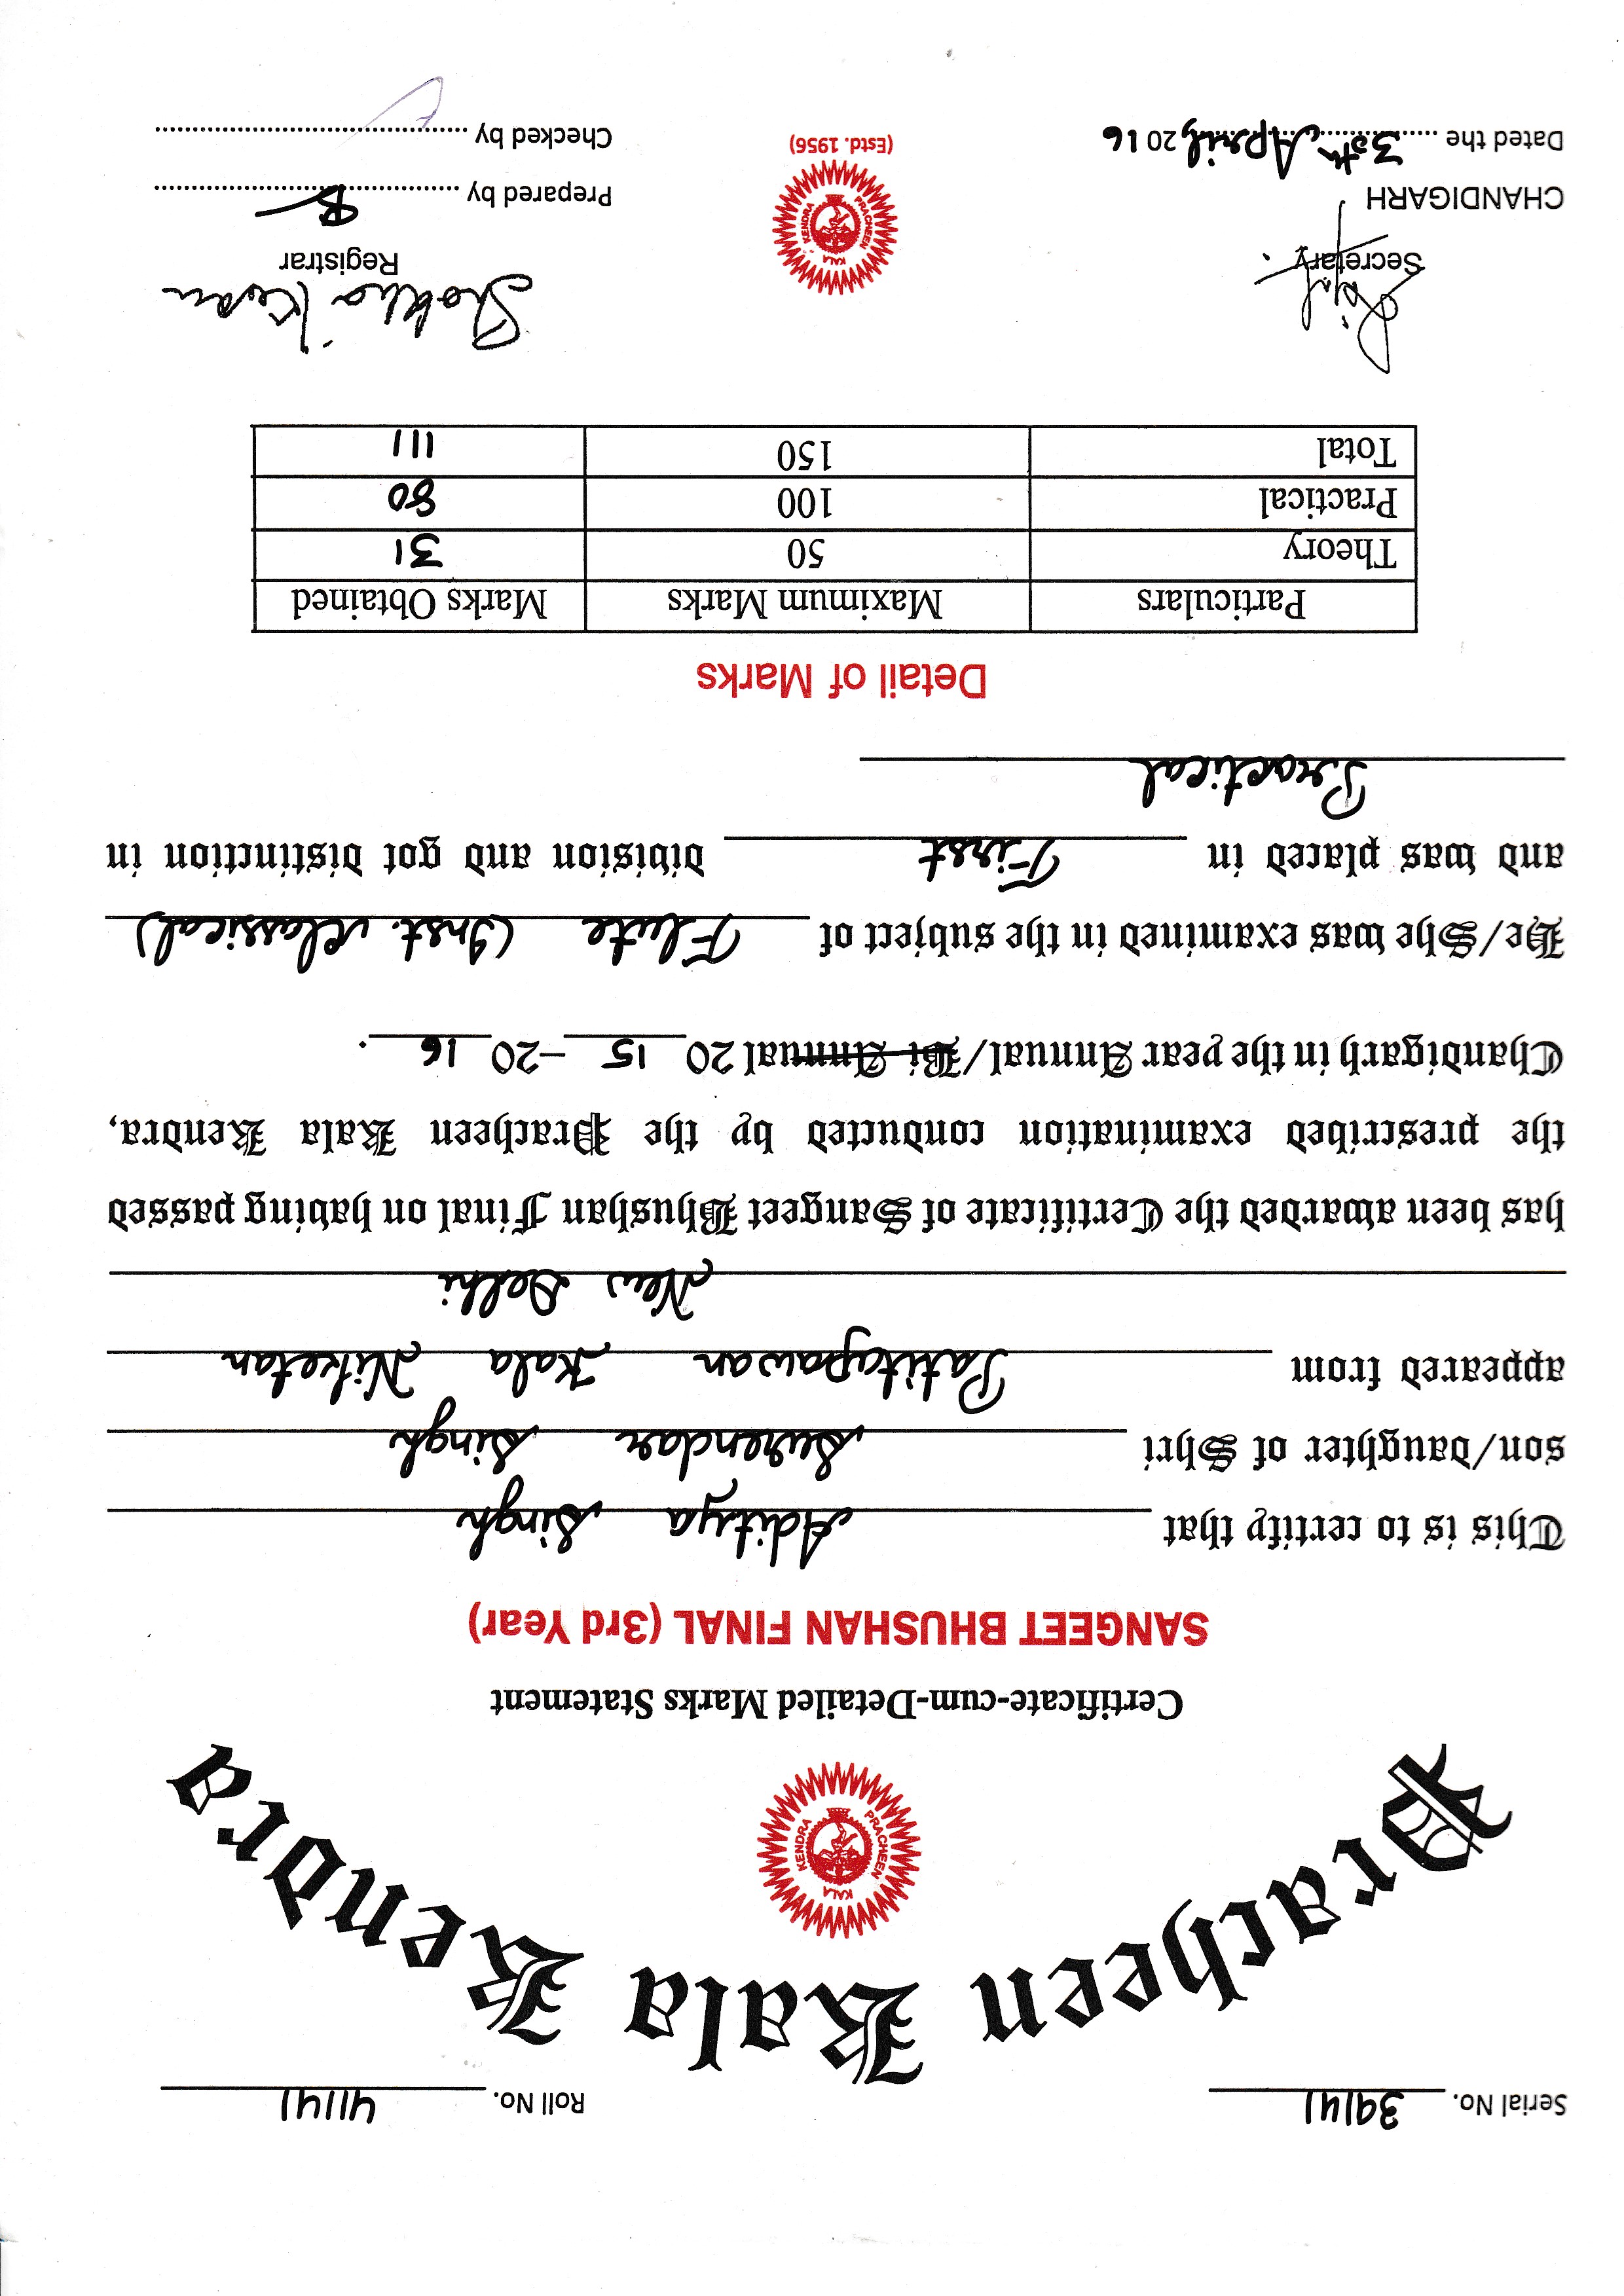 Serial No. 39141
Roll No. 41141
Pracheen Kala Kendra
PRACHEEN KALA KENDRA
Certificate-cum-Detailed Marks Statement
SANGEET BHUSHAN FINAL (3rd Year)
This is to certify that Aditya Singh
son/daughter of Shri Surendar Singh
appeared from Patitapawan Kala Niketan
New Delhi
has been awarded the Certificate of Sangeet Bhushan Final on having passed
the prescribed examination conducted by the Pracheen Kala Kendra,
Chandigarh in the year Annual/Bi-Annual 20 15 –20 16 .
He/She was examined in the subject of Flute (Inst. Classical)
and was placed in First division and got distinction in
Practical
Detail of Marks
Particulars Maximum Marks Marks Obtained
Theory 50 31
Practical 100 80
Total 150 111
Secretary
Registrar
CHANDIGARH
PRACHEEN KALA KENDRA
Prepared by
Dated the 30th April, 2016
(Estd. 1956)
Checked by